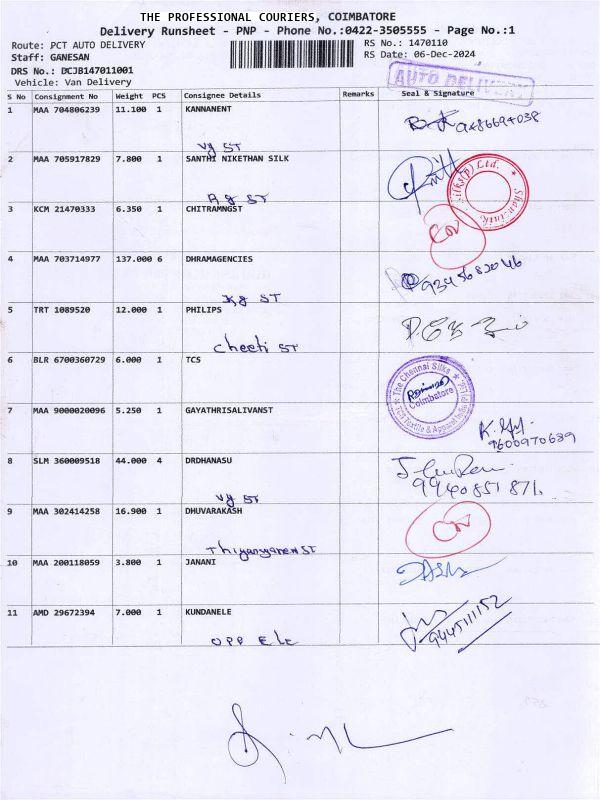 THE PROFESSIONAL COURIERS, COIMBATORE
Delivery Runsheet - PNP - Phone No.:0422-3505555 - Page No.:1
Route: PCT AUTO DELIVERY
RS No.: 1470110
Staff: GANESAN
RS Date: 06-Dec-2024
DRS No.: BCJB147011001
Vehicle: Van Delivery
AUTO DELIVERY
S No Consignment No Weight PCS Consignee Details Remarks Seal & Signature
1 MAA 704806239 11.100 1 KANNANENT
vg ST
2 MAA 705917829 7.800 1 SANTHI NIKETHAN SILK
Rg ST
3 KCM 21470333 6.350 1 CHITRAMNGST
4 MAA 703714977 137.000 6 DHRAMAGENCIES
9345682046
kg ST
5 TRT 1089520 12.000 1 PHILIPS
cheeti ST
6 BLR 6700360729 6.000 1 TCS
The Chennai Silks
Coimbatore
7 MAA 9000020096 5.250 1 GAYATHRISALIVANST
9600970639
8 SLM 360009518 44.000 4 DRDHANASU
9940851871
vg ST
9 MAA 302414258 16.900 1 DHUVARAKASH
10 MAA 200118059 3.800 1 JANANI
11 AMD 29672394 7.000 1 KUNDANELE
9445111152
opp Ele